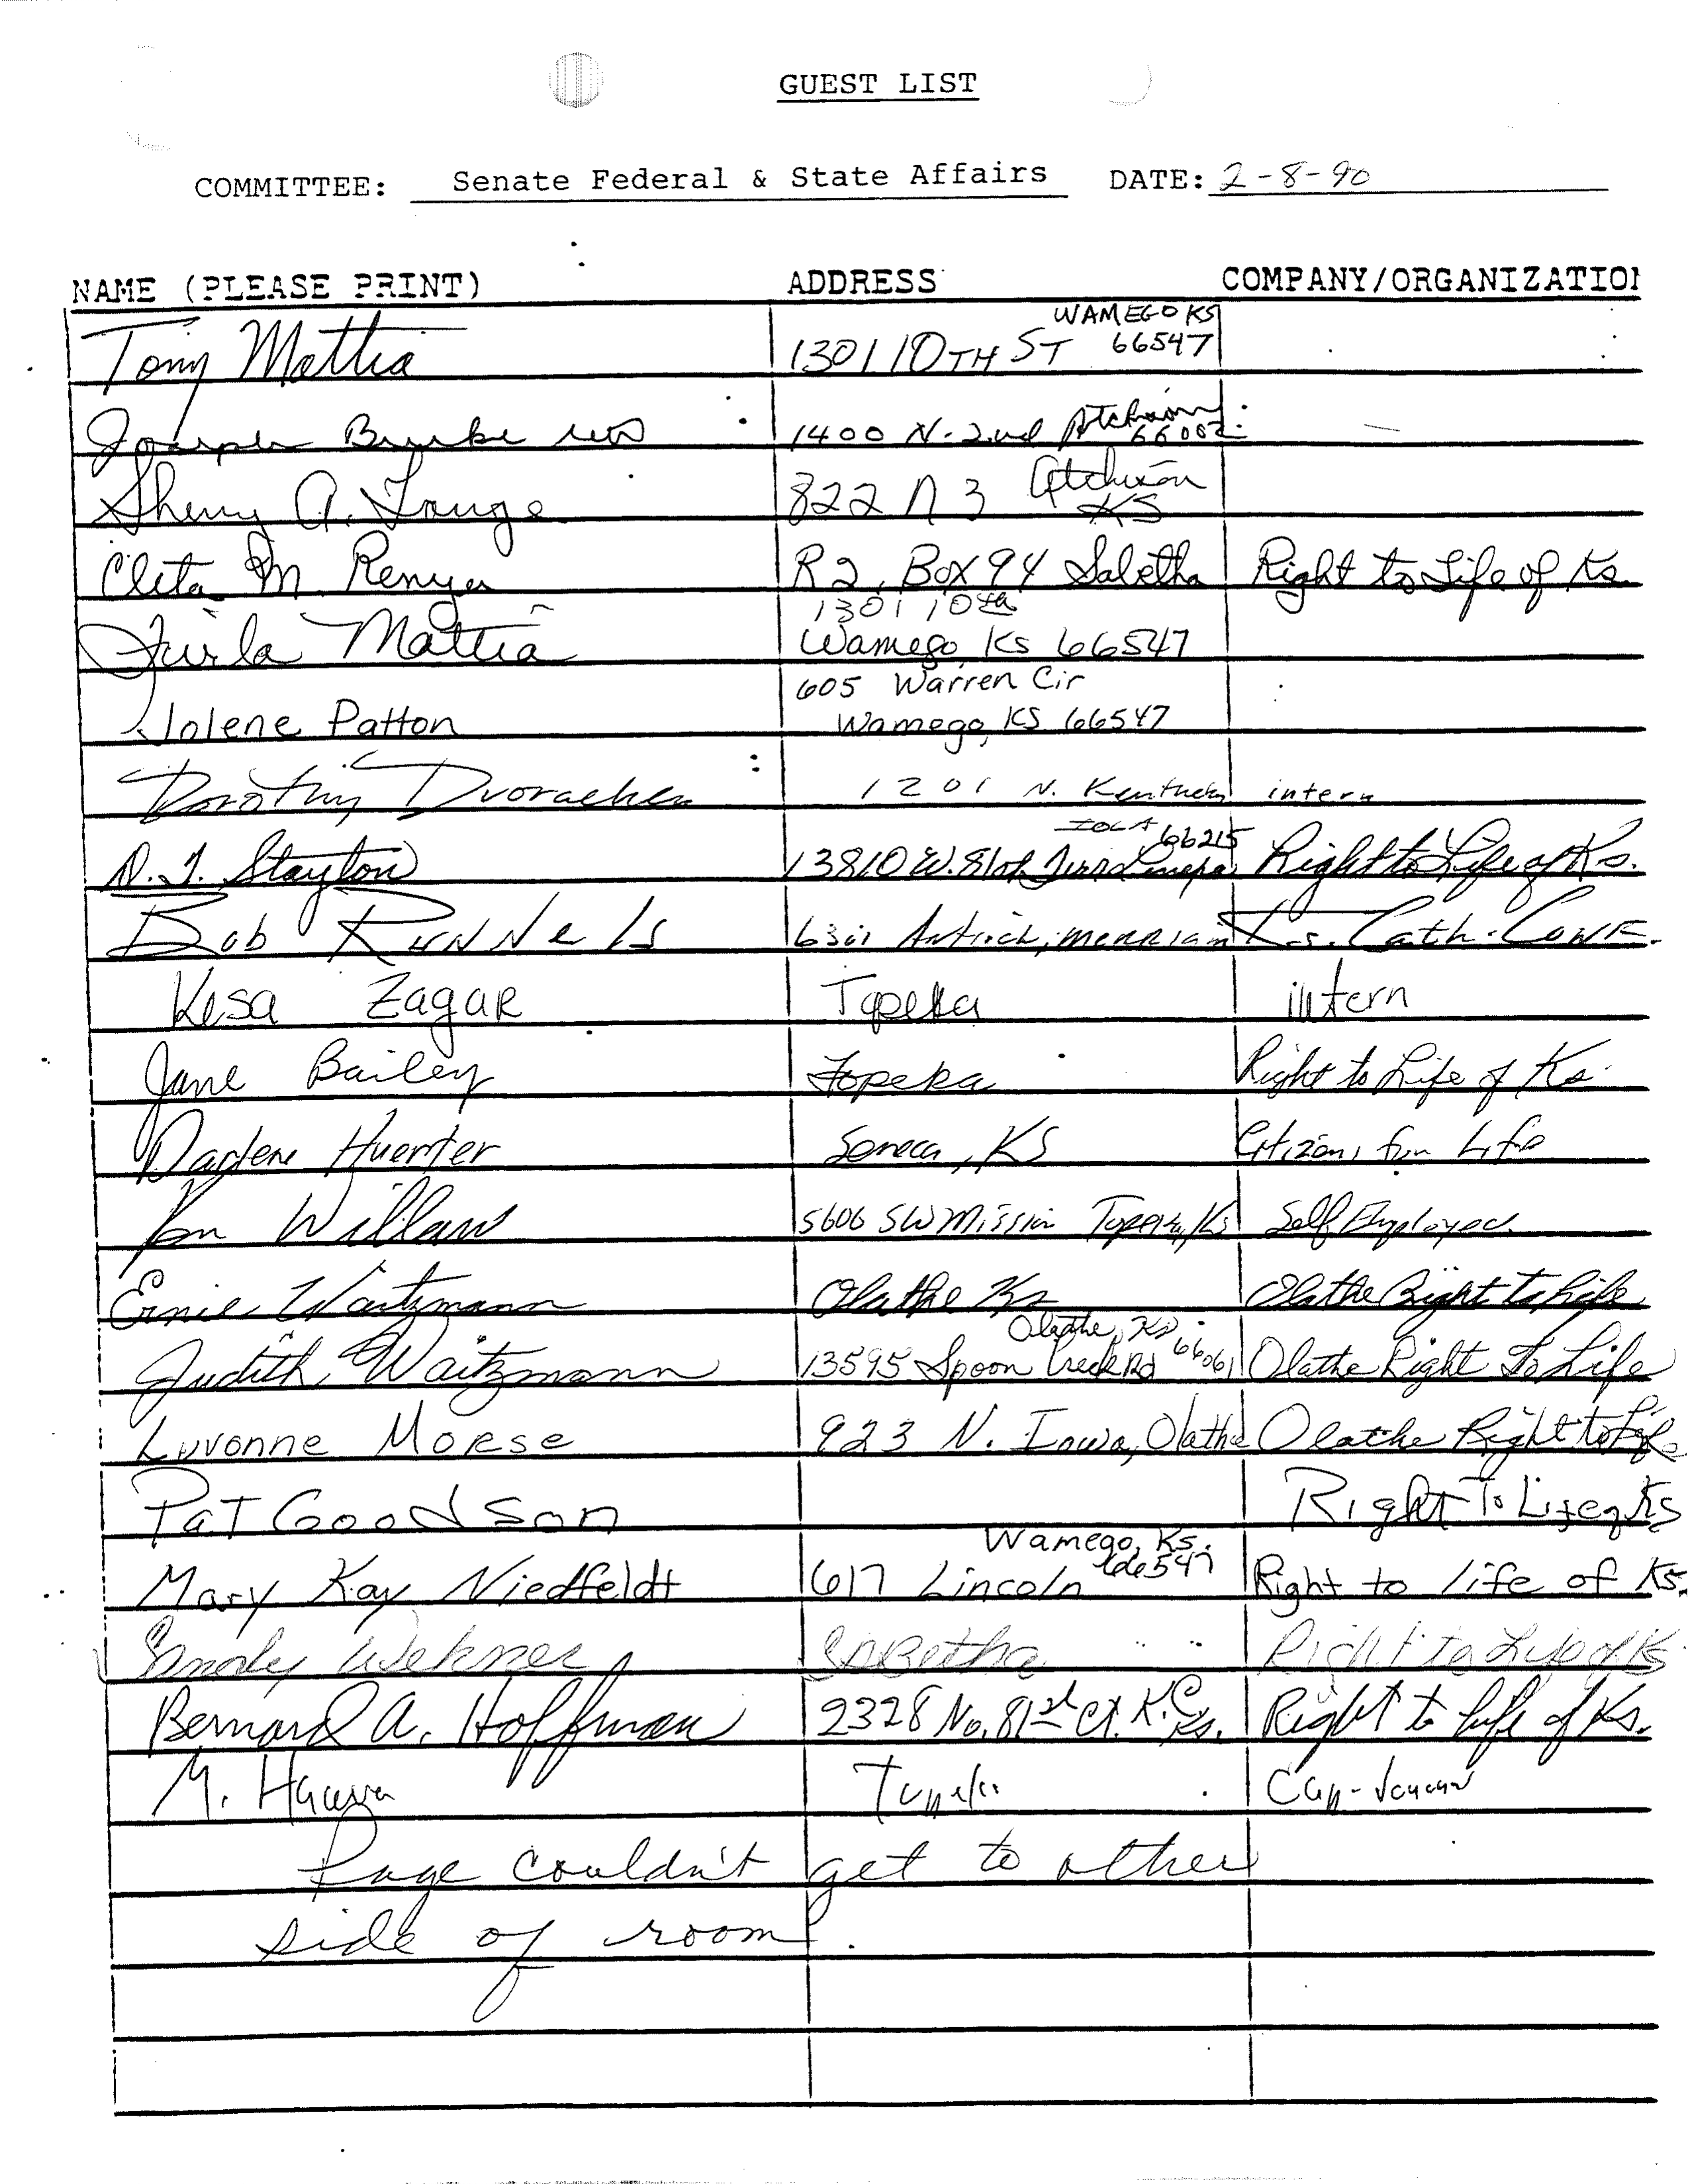 GUEST LIST
COMMITTEE: Senate Federal & State Affairs DATE: 2-8-90
NAME (PLEASE PRINT) ADDRESS COMPANY/ORGANIZATION
WAMEGO KS
Tony Mattia 1301 10TH ST 66547
Joseph Burke 1400 N. 2nd Atchison 66002
Sherry A. 822 N 3 Atchison KS
Cleta M. Renyer R 2, Box 94 Sabetha Right to Life of Ks.
1301 10th
Mattia Wamego, Ks 66547
605 Warren Cir
Jolene Patton Wamego, KS 66547
Dorothy 1201 N. Kentucky intern
IOLA 66215
Stayton 13810 W. Right to Life of Ks.
Bob Runnels 6301 Antioch, Merriam Ks. Cath. Conf.
Kesa Zagar Topeka intern
Jane Bailey Topeka Right to Life of Ks.
Darlene Huerter Seneca, KS Citizens for Life
5606 SW Mission Topeka, Ks Self Employed
Ernie Waitzmann Olathe Ks Olathe Right to Life
Olathe, Ks
Judith Waitzmann 13595 Spoon Creek Rd 66061 Olathe Right To Life
Luvonne Morse 923 N. Iowa, Olathe Olathe Right to Life
Pat Goodson Right To Life of Ks
Wamego, Ks.
Mary Kay Niedfeldt 617 Lincoln 66547 Right to life of Ks.
Sabetha Right to Life of Ks
Bernard A. Hoffman 2328 No. 81st Ct. K.C. Ks. Right to Life of Ks.
M. Topeka
Page couldn't get to other
side of room.